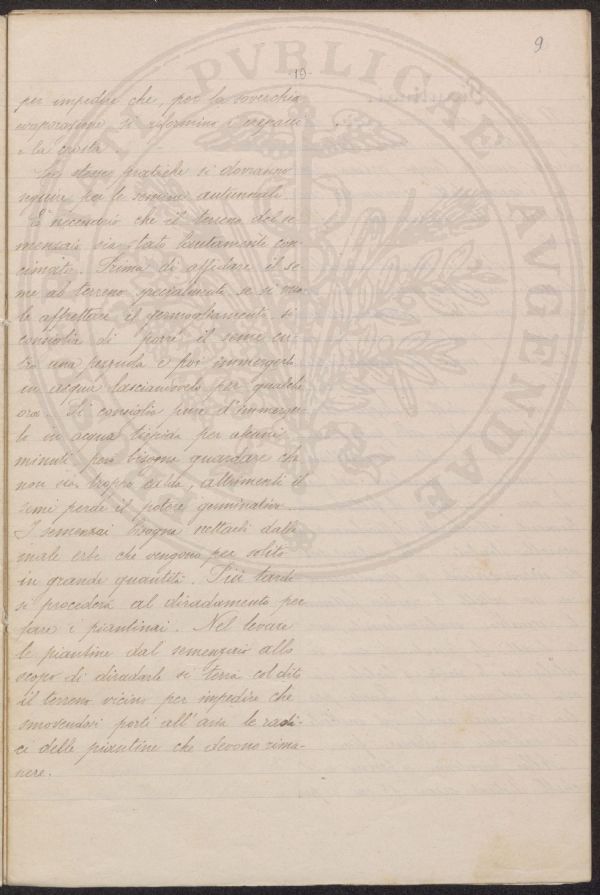 9
-19-
per impedire che, per la soverchia
evaporazione si riformino i crepacci
e la crosta.
Le stesse pratiche si dovranno
seguire per le semine autunnali
È necessario che il terreno del se
menzaio sia stato lautamente con
cimato. Prima di affidare il se
me al terreno specialmente se si vuo
le affrettare il germogliamento si
consiglia di porre il seme en
tro una pezzuola e poi immergerla
in acqua lasciandovela per qualche
ora. Si consiglia pure d'immerger
lo in acqua tiepida per alcuni
minuti però bisogna guardare che
non sia troppo calda, altrimenti il
seme perde il potere germinativo.
I semenzai bisogna nettarli dalle
male erbe che vengono per solito
in grande quantità. Più tardi
si procederà al diradamento per
fare i piantinai. Nel levare
le piantine dal semenzaio allo
scopo di diradarle si terrà col dito
il terreno vicino per impedire che
smovendosi porti all'aria le radi-
ci delle piantine che devono rima-
nere.
PVBLICAE
AVGENDAE